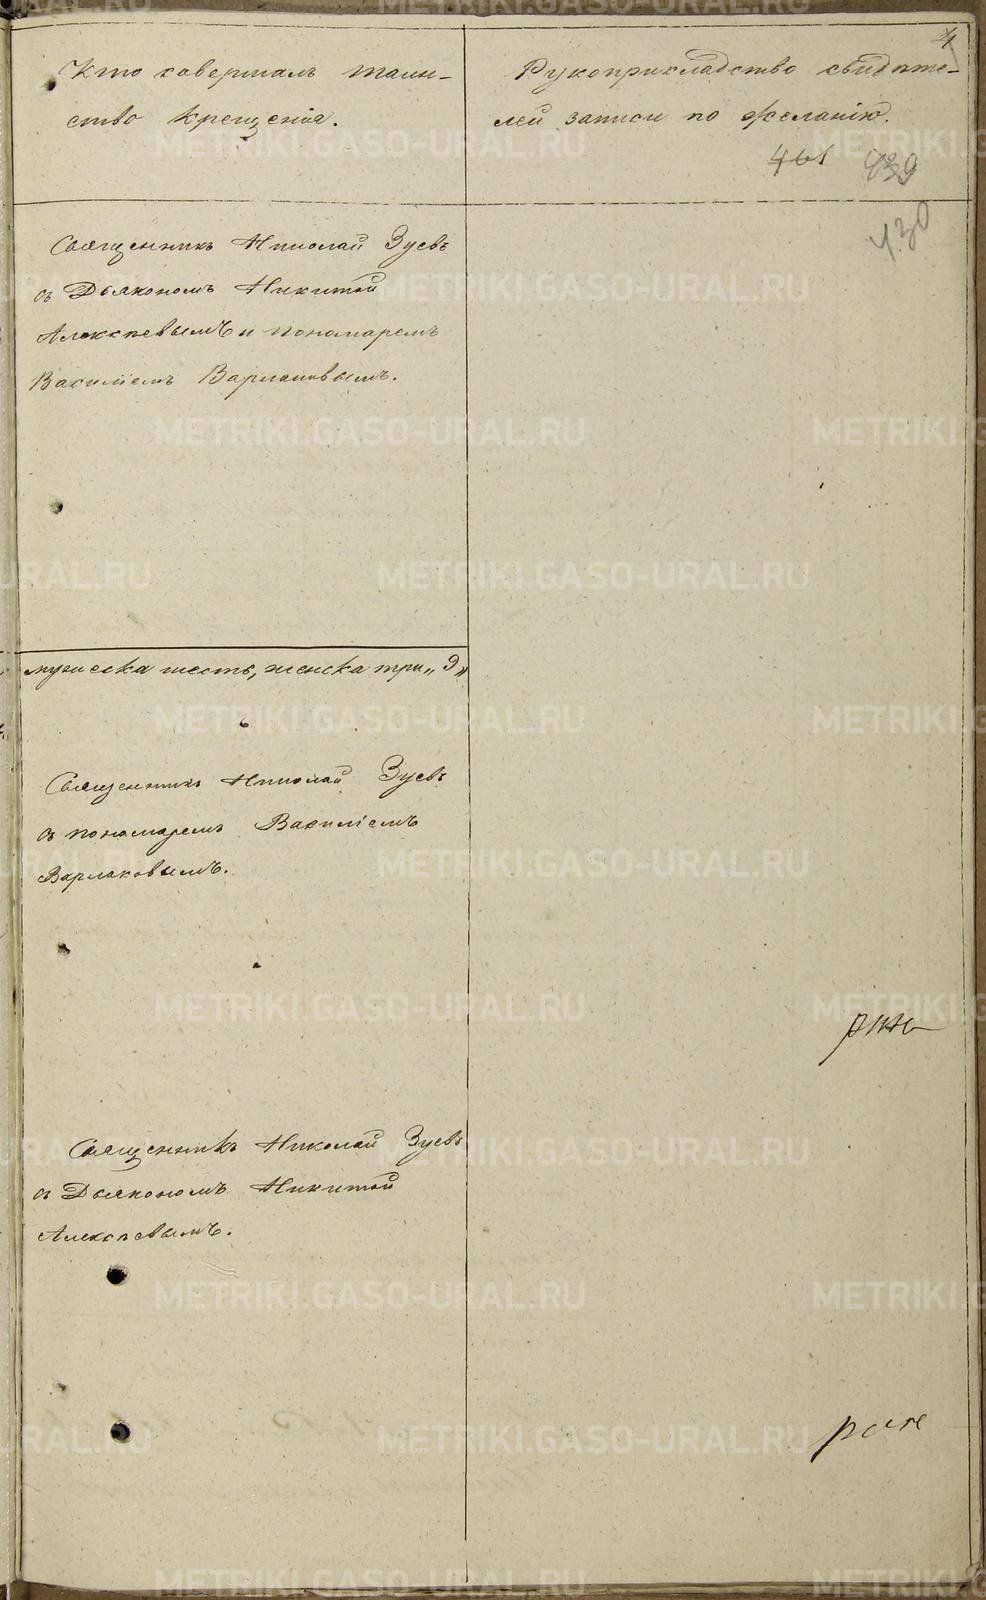 4
Кто совершалъ таин-
ство крещенія.
Рукоприкладство свидѣте-
лей записи по желанію.
461 439
430
Священникъ Николай Зуевъ
съ Дьякономъ Никитой
Алексѣевымъ и пономаремъ
Василіемъ Варлаковымъ.
мужеска шесть, женска три „9„
Священникъ Николай Зуевъ
съ пономаремъ Василіемъ
Варлаковымъ.
Священникъ Николай Зуевъ
съ Дьякономъ Никитой
Алексѣевымъ.
METRIKI.GASO-URAL.RU